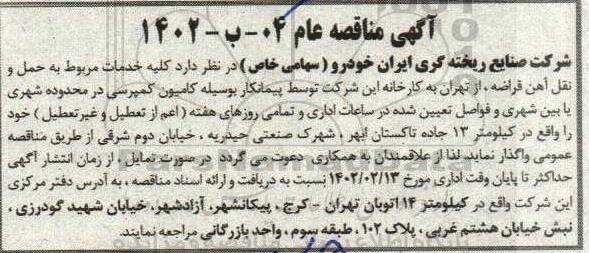 آگهی مناقصه عام ۰۴-ب-۱۴۰۲
شرکت صنایع ریخته گری ایران خودرو (سهامی خاص) در نظر دارد کلیه خدمات مربوط به حمل و
نقل آهن قراضه ، از تهران به کارخانه این شرکت توسط پیمانکار بوسیله کامیون کمپرسی در محدوده شهری
یا بین شهری و فواصل تعیین شده در ساعات اداری و تمامی روزهای هفته (اعم از تعطیل و غیرتعطیل) خود
را واقع در کیلومتر ۱۳ جاده تاکستان ابهر ، شهرک صنعتی حیدریه ، خیابان دوم شرقی از طریق مناقصه
عمومی واگذار نماید. لذا از علاقمندان به همکاری دعوت می گردد در صورت تمایل ، از زمان انتشار آگهی
حداکثر تا پایان وقت اداری مورخ ۱۴۰۲/۰۲/۱۳ نسبت به دریافت و ارائه اسناد مناقصه ، به آدرس دفتر مرکزی
این شرکت واقع در کیلومتر ۱۴ اتوبان تهران - کرج ، پیکانشهر، آزادشهر، خیابان شهید گودرزی ،
نبش خیابان هشتم غربی ، پلاک ۱۰۲، طبقه سوم ، واحد بازرگانی مراجعه نمایند.